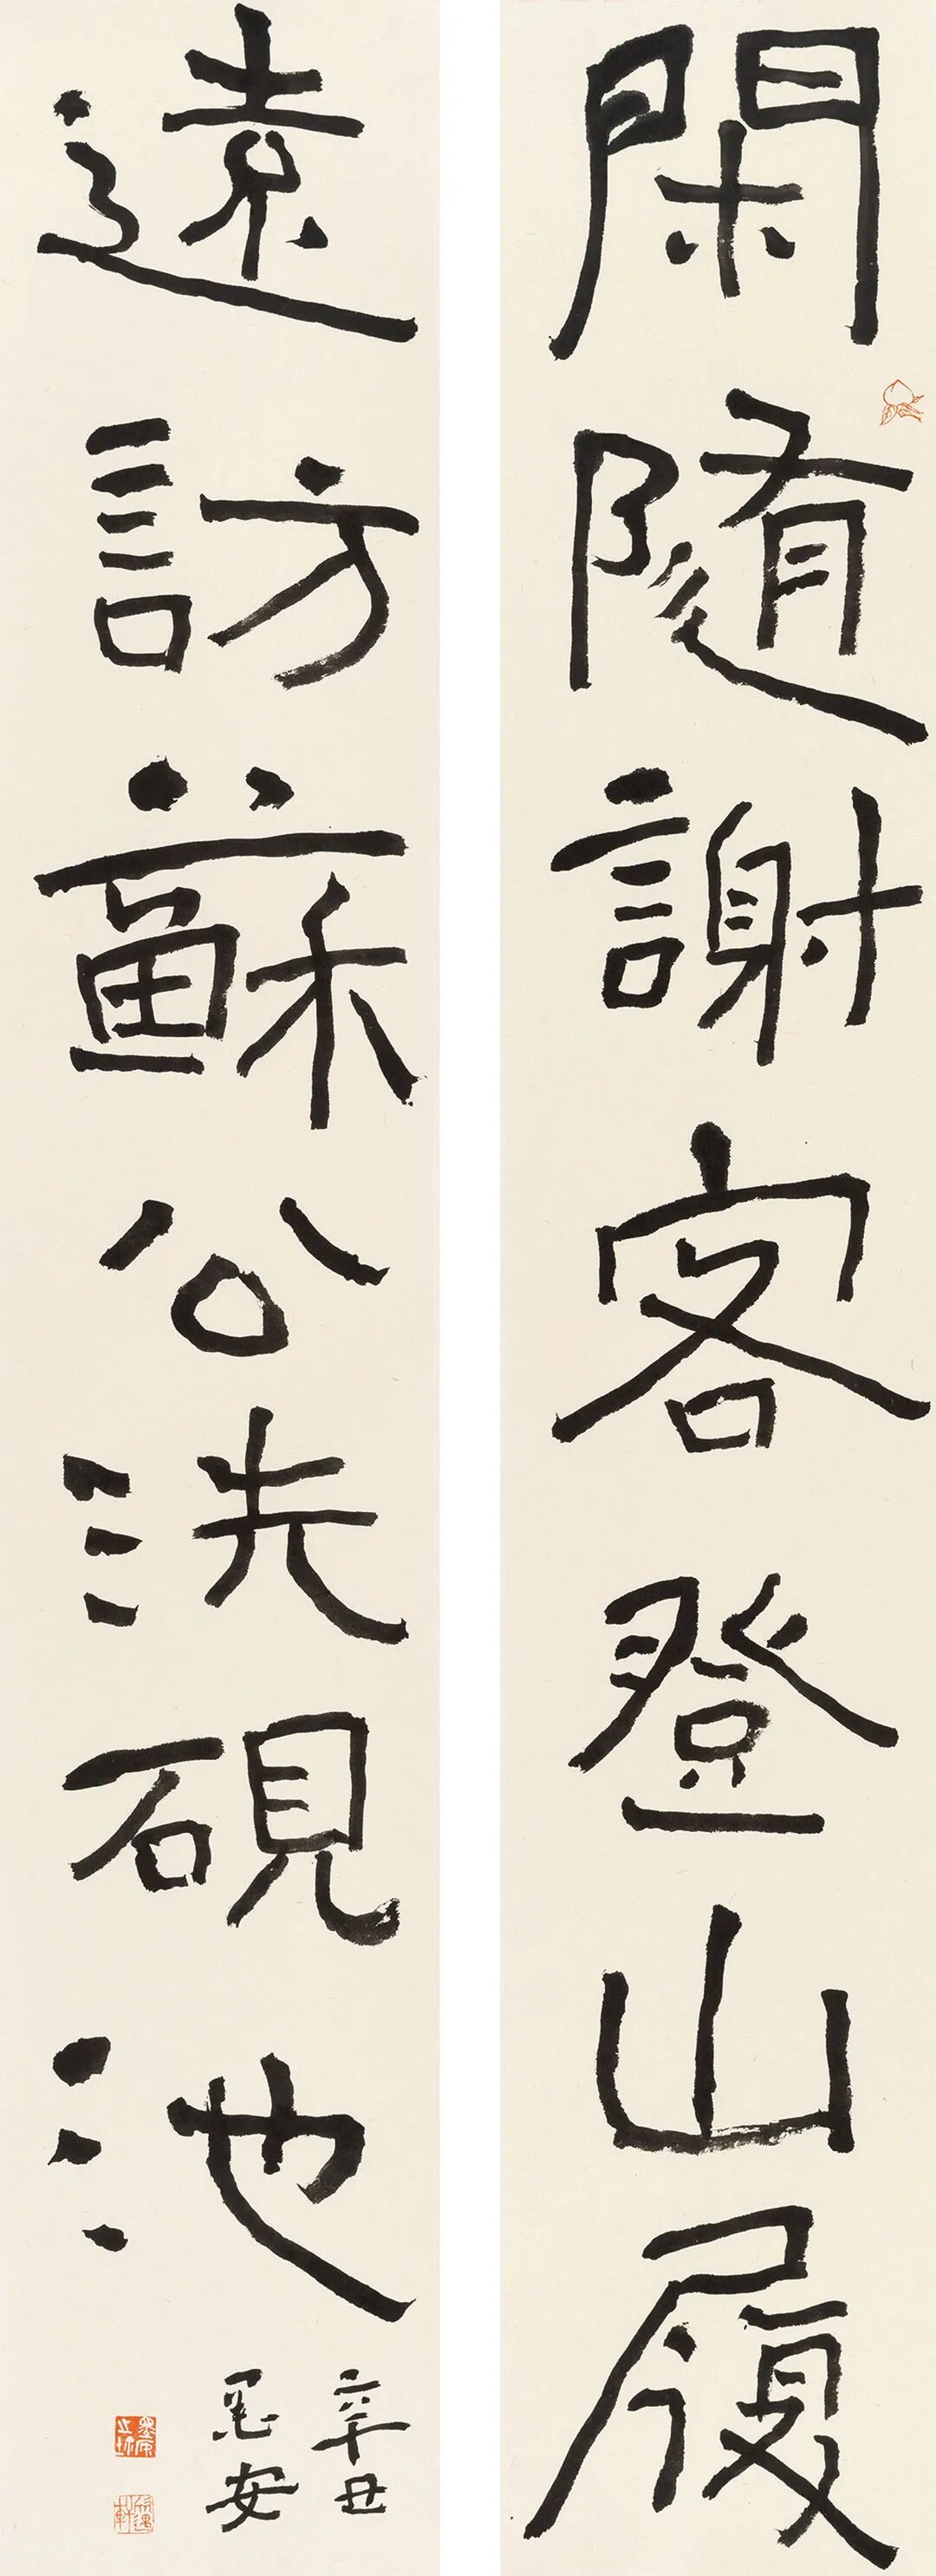 閑隨謝客登山屐
遠訪蘇公洗硯池
辛丑
墨安